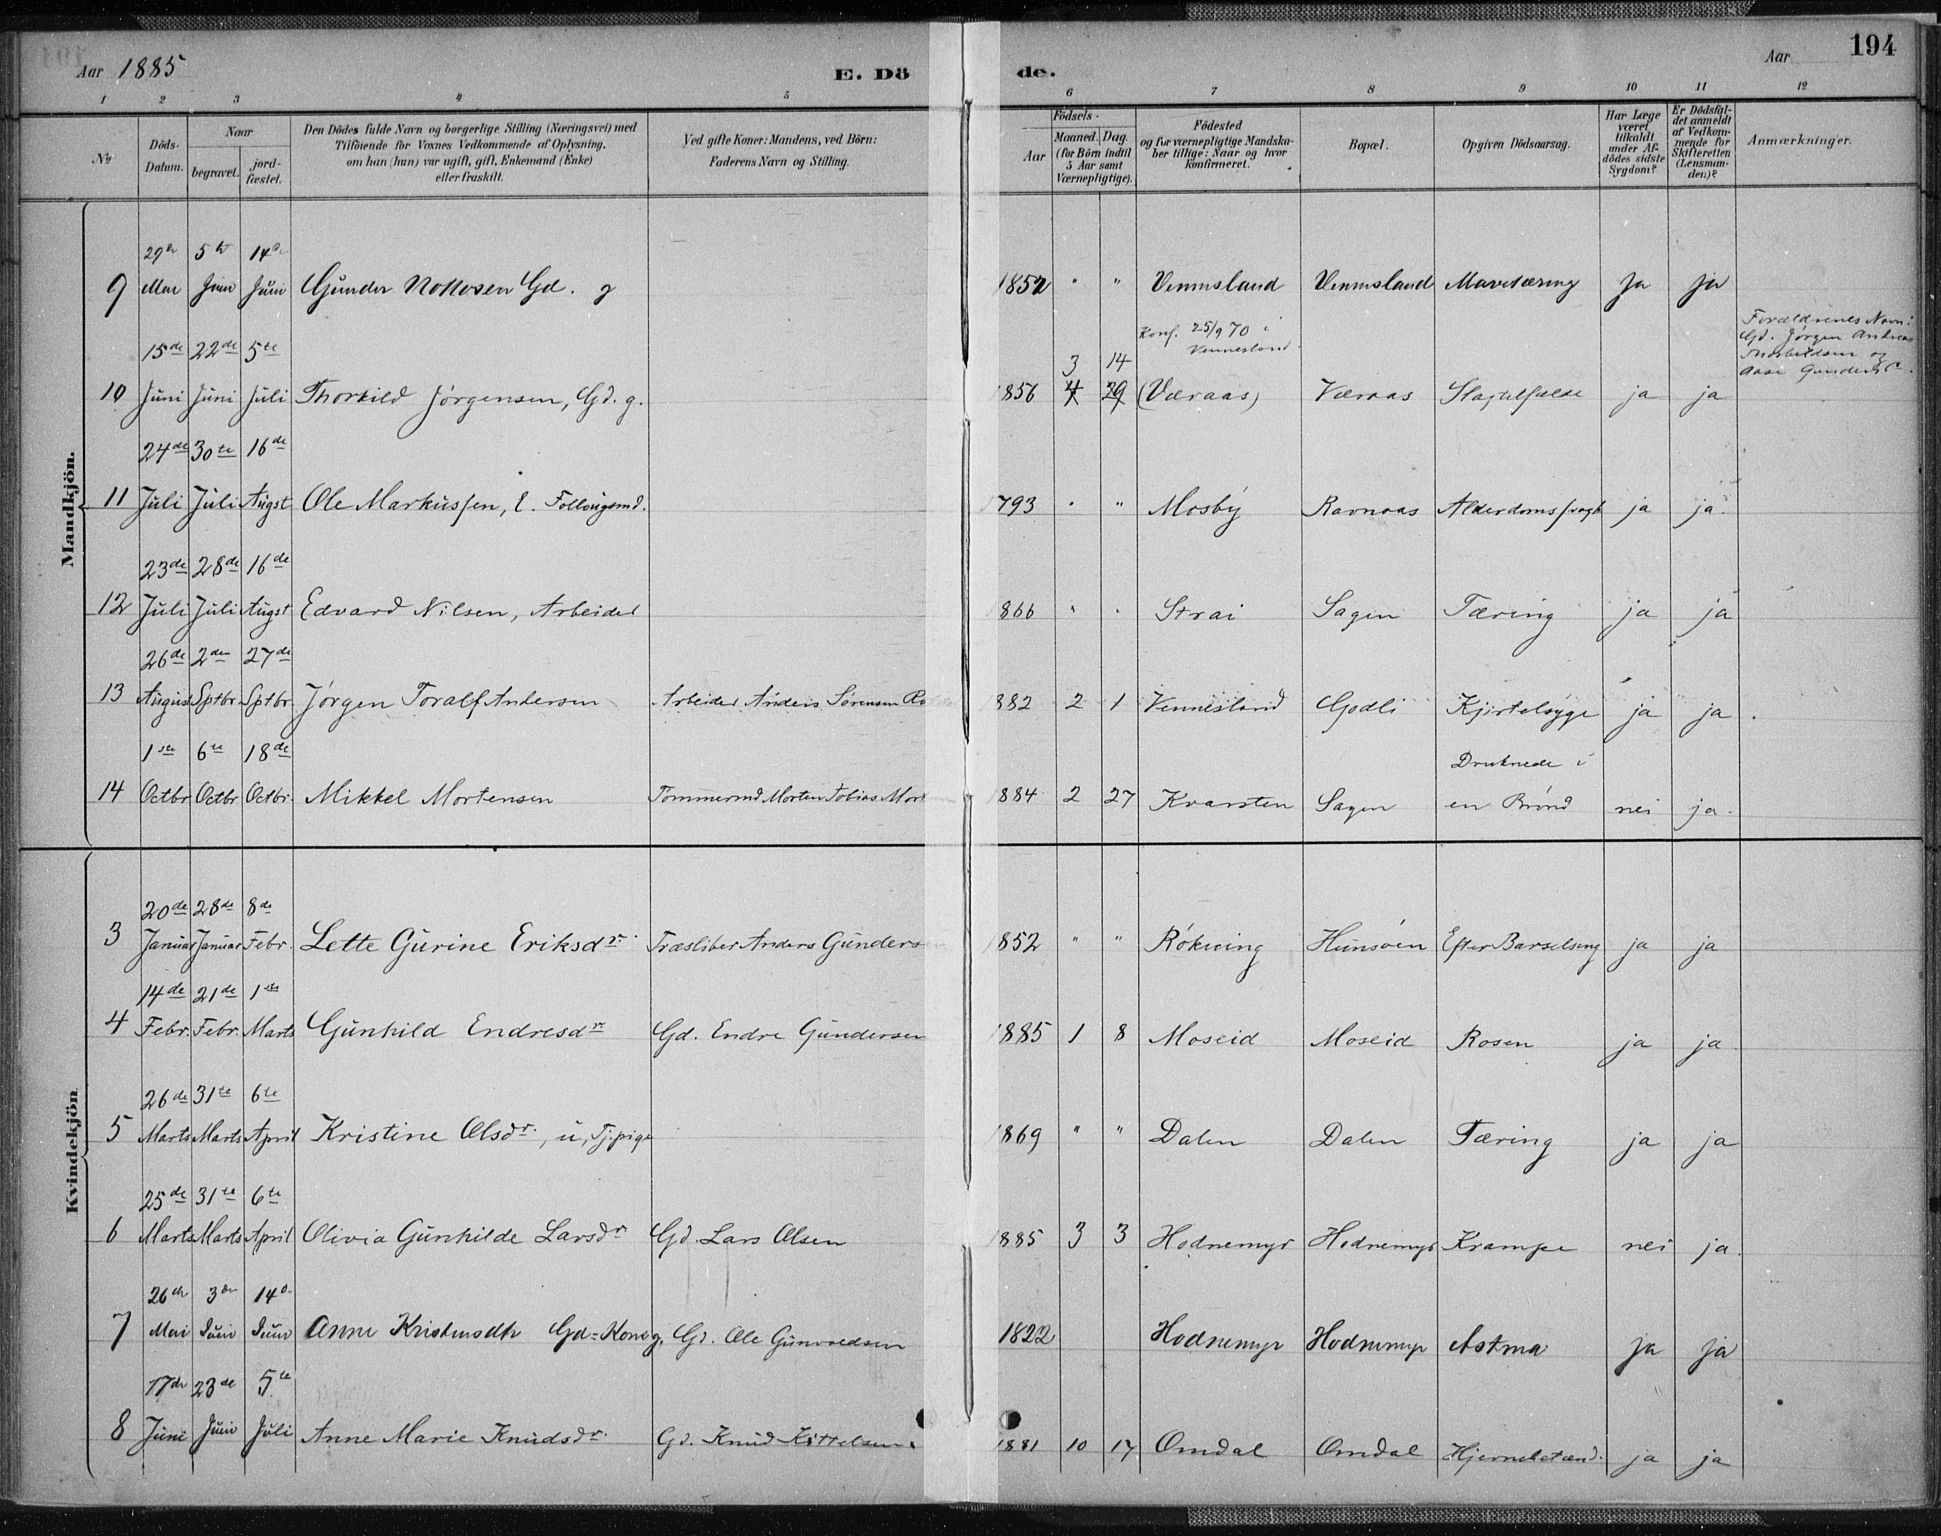 Aar 1885 E. Dö de. Aar 194
1 2 3 4 5 6 7 8 9 10 11 12
No
Döds-Datum.
Naar
begravet. jord-fæstet.
Den Dödes fulde Navn og borgerlige Stilling (Næringsvei) med
Tilföiende for Voxnes Vedkommende af Oplysning,
om han (hun) var ugift, gift, Enkemand (Enke)
eller fraskilt.
Ved gifte Koner: Mandens, ved Börn:
Faderens Navn og Stilling.
Födsels-
Aar
Maaned. Dag.
(for Börn indtil
5 Aar samt
Værnepligtige).
Födested
og for værnepligtige Mandska-
ber tillige: Naar og hvor
Konfirmeret.
Bopæl.
Opgiven Dödsaarsag.
Har Læge
været
tilkaldt
under Af-
dödes sidste
Sygdom?
Er Dödsfal-
det anmeldt
af Vedkom-
mende for
Skifteretten
(Lensman-
den)?
Anmærkninger.
Mandkjön.
29de 5te 14de
9 Mai Juni Juni Gunder Nottosen Gd. g 1852 " " Vennesland Vennesland Mavetæring Ja Ja
Konf. 25/9 70 i
Vennesland.
Forældrenes Navn:
Gd. Jørgen Andreas
Thorkildsen og
Aase Gundersd.
15de 22de 5te 3 14
10 Juni Juni Juli Thorkild Jörgensen, Gd. g. 1856 4 29 (Væraas) Væraas Slagtilfælde ja ja
24de 30te 16de
11 Juli Juli Augst Ole Markussen, E. Follougsmd. 1793 " " Mosby Ravnaas Alderdomssvagh ja ja
23de 28de 16de
12 Juli Juli Augst Edvard Nilsen, Arbeider 1866 " " Strai Sagen Tæring ja ja
26de 2den 27de
13 August Sptbr. Sptbr. Jörgen Toralf Andersen Arbeider Anders Sörensen 1882 2 1 Vennesland Godli Kjirtelsyge ja ja.
1ste 6te 18de Druknede i
14 Octbr Octbr Octbr. Mikkel Mortensen Tommermd Morten Tobias Mort 1884 2 27 Kvarsten Sagen en Brönd nei ja.
Kvindekjön
20de 28de 8de
3 Januar Januar Febr. Lette Gurine Eriksdr. Træsliber Anders Gunders 1852 " " Rökning Hunsöen Efter Barselseng ja ja
14de 21de 1ste
4 Febr. Febr. Marts Gunhild Endresdr Gd. Endre Gundersen 1885 1 8 Moseid Moseid Rosen ja ja
26de 31te 6te
5 Marts Marts April Kristine Olsdr., u, Tj.pige 1869 " " Dalen Dalen Tæring ja ja
25de 31te 6te
6 Marts Marts April Olivia Gunhilde Larsdr Gd. Lars Olsen 1885 3 3 Hodnemyr Hodnemyr Krampe nei ja.
26de 3de 14de
7 Mai Juni Juni Anne Kristensdtr Gd=Kone g. Gd. Ole Gunvaldsen 1822 Hodnemyr Hodnemyr Astma ja ja
17de 23de 5te
8 Juni Juni Juli Anne Marie Knudsdr. Gd. Knud Kittelsen. 1881 10 17 Omdal Omdal Hjernebetænd. ja ja